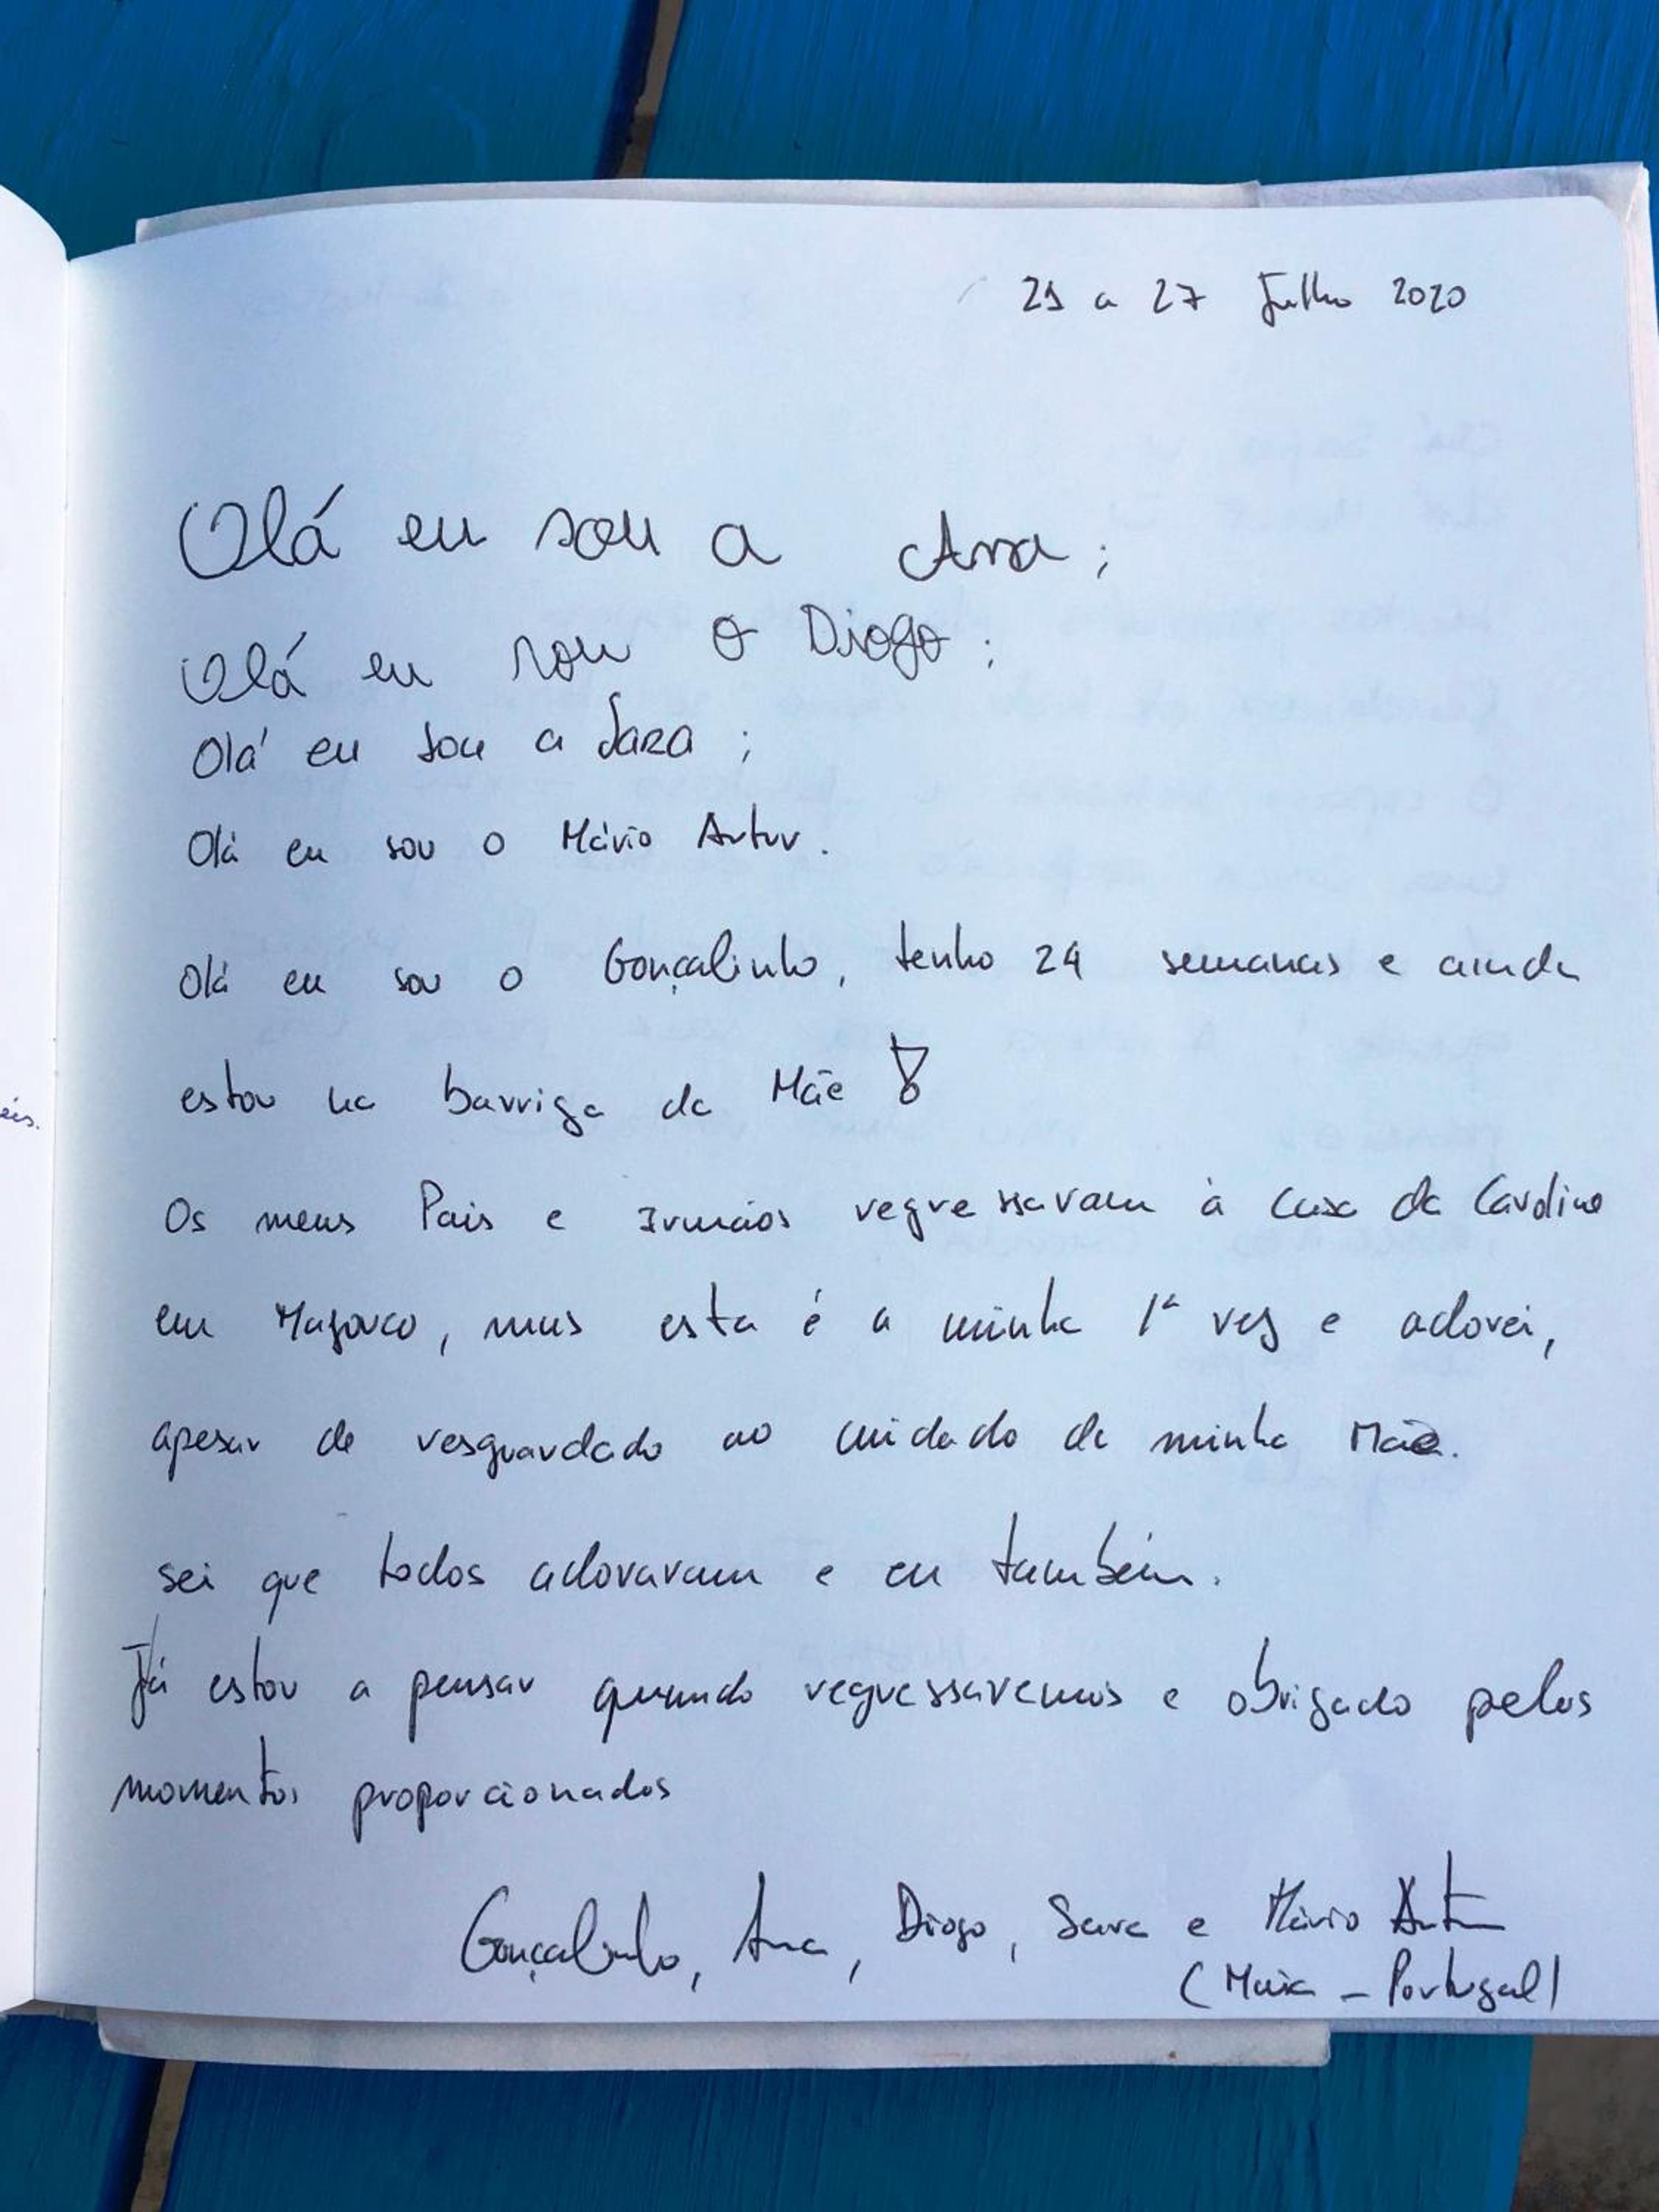 21 a 27 Julho 2020
Olá eu sou a Ana;
Olá eu sou o Diogo;
Olá eu sou a Sara;
Olá eu sou o Mário Artur.
Olá eu sou o Gonçalinho, tenho 24 semanas e ainda
estou na barriga da Mãe !
Os meus Pais e Irmãos regressaram à Casa da Carolina
em Mazouco, mas esta é a minha 1ª vez e adorei,
apesar de resguardado ao cuidado da minha Mãe.
sei que todos adoraram e eu também.
Já estou a pensar quando regressaremos e obrigado pelos
momentos proporcionados
Gonçalinho, Ana, Diogo, Sara e Mário Artur
(Maia - Portugal)
eis.